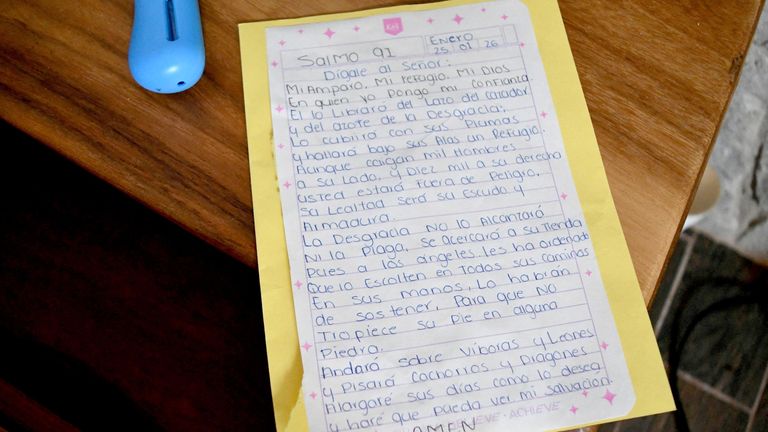 Salmo 91
Enero
25 01 26
Dígale al Señor:
Mi Amparo, Mi refugio, Mi Dios
En quien yo Pongo mi confianza
El lo Librará del Lazo del cazador
y del azote de la Desgracia;
Lo cubrirá con sus Plumas
y hallará bajo sus Alas un Refugio.
Aunque caigan mil Hombres
a su Lado, y Diez mil a su derecha
usted estará Fuera de Peligro,
su Lealtad será su Escudo y
Armadura.
La Desgracia No lo Alcanzará
Ni la Plaga, se Acercará a su Tienda
Pues a los ángeles, les ha ordenado
Que lo Escolten en Todos sus caminos
En sus manos, Lo habrán
de sostener, Para que No
Tropiece su Pie en alguna
Piedra.
Andará sobre Víboras y Leones
y Pisará Cachorros y Dragones
Alargaré sus días como lo desea
y haré que Pueda ver mi salvación.
ACHIEVE
AMEN